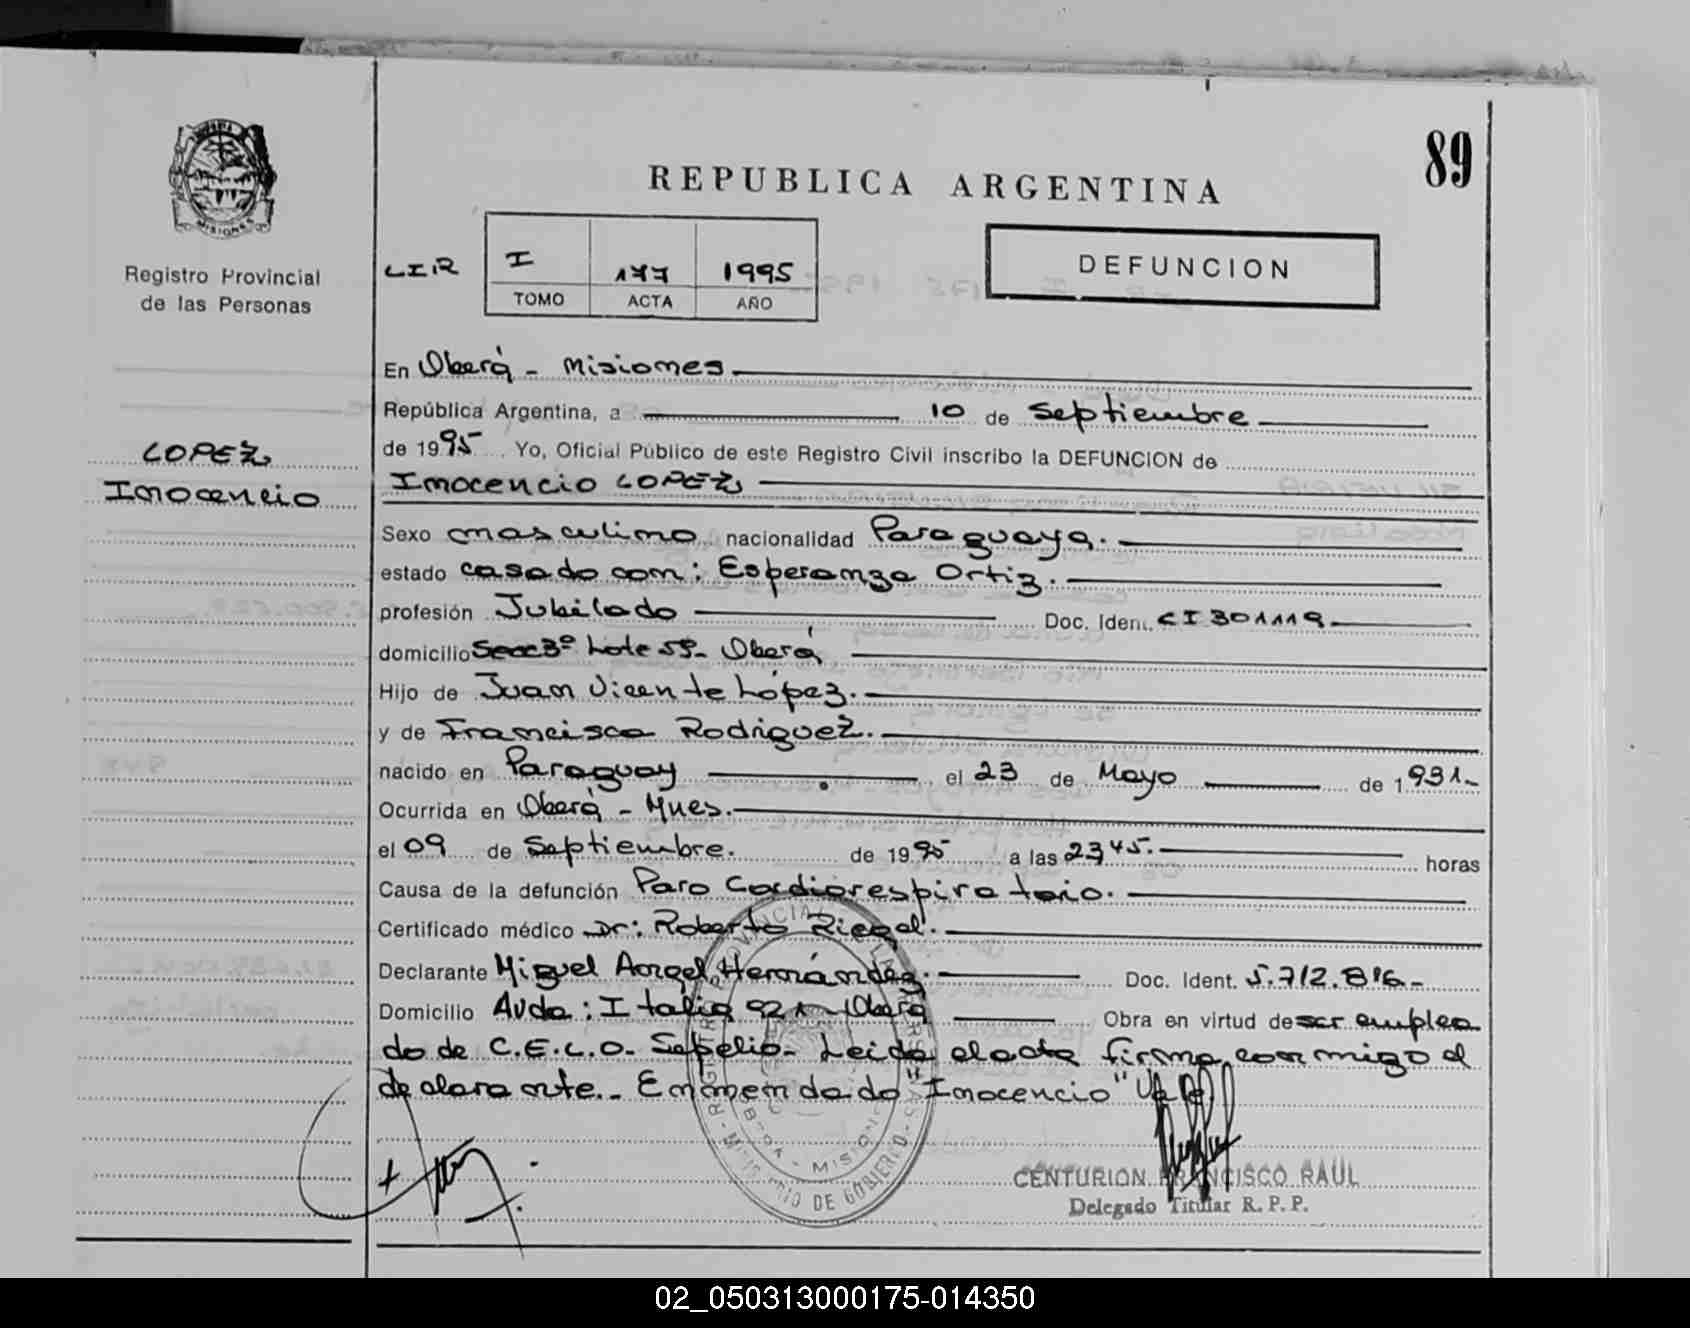 89
REPUBLICA ARGENTINA
MISIONES
Registro Provincial
de las Personas
LIR I 177 1995
TOMO ACTA AÑO
DEFUNCION
LOPEZ
Inocencio
En Oberá - Misiones
República Argentina, a 10 de Septiembre
de 1995 Yo, Oficial Público de este Registro Civil inscribo la DEFUNCION de
Inocencio LOPEZ
Sexo masculino nacionalidad Paraguaya.
estado casado con: Esperanza Ortiz.
profesión Jubilado Doc. Iden. CI 301119
domicilio Secc 3º Lote 59- Oberá
Hijo de Juan Vicente López.
y de Francisca Rodriguez.
nacido en Paraguay el 23 de Mayo de 1931-
Ocurrida en Oberá - Mnes.
el 09 de Septiembre. de 1995 a las 2345. horas
Causa de la defunción Paro Cardiorespiratorio.
Certificado médico Dr: Roberto Riegel.
Declarante Miguel Angel Hernández. Doc. Ident. 5.712.816-
Domicilio Avda: Italia 921- Oberá Obra en virtud de ser emplea
do de C.E.L.O. Sepelio- Leida el acta firma conmigo el
declarante.- Enmendado "Inocencio" Vale
MINISTERIO DE GOBIERNO
CENTURION FRANCISCO RAUL
Delegado Titular R. P. P.
02_050313000175-014350